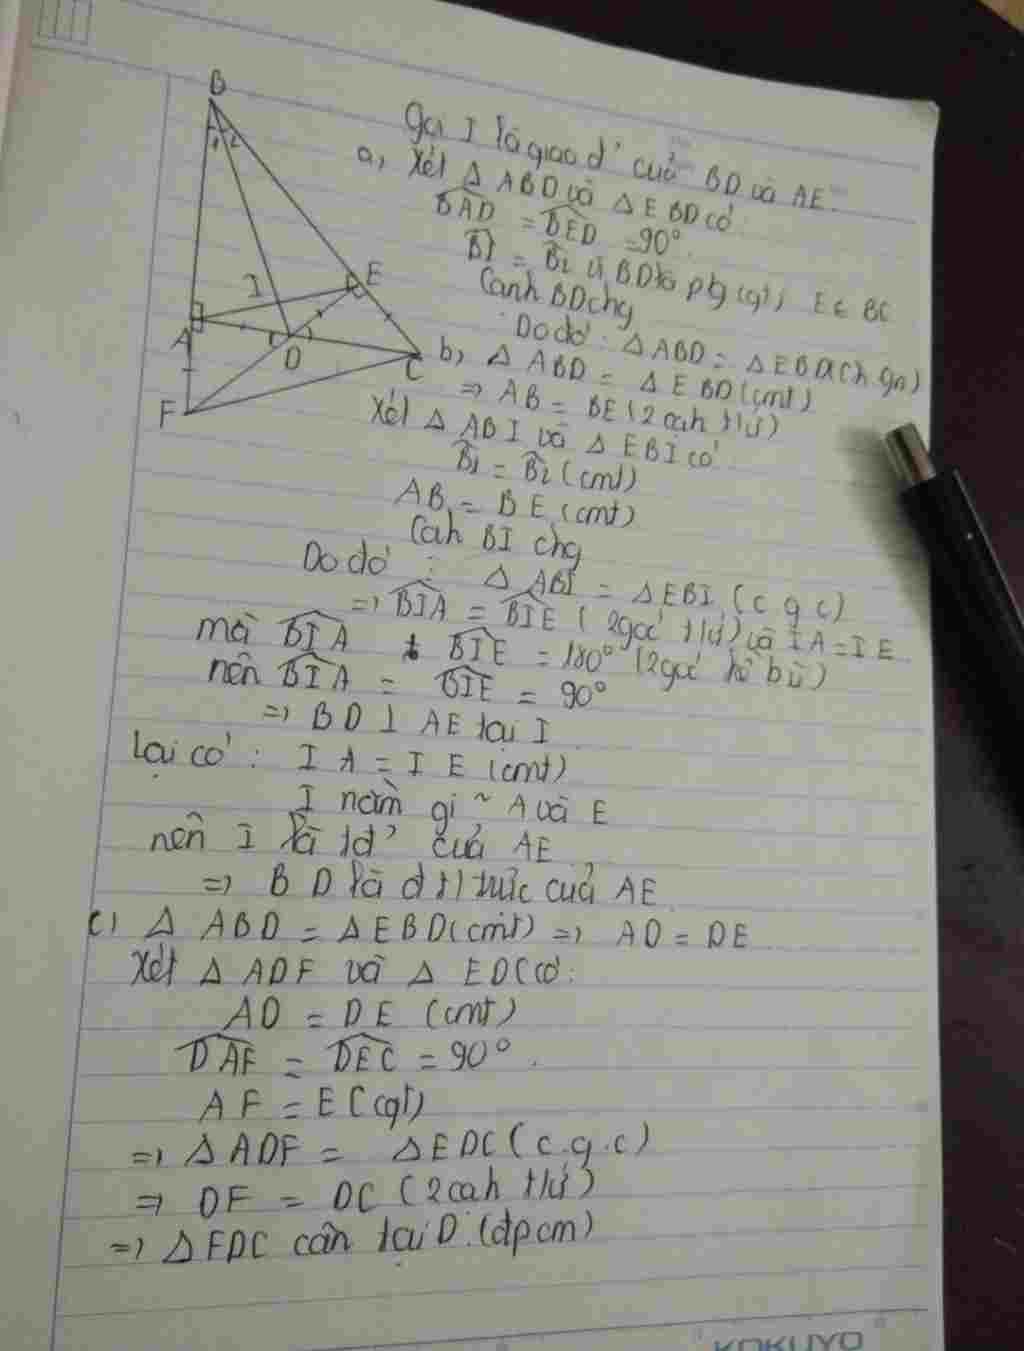 B
1 2
I
E
A
D
C
F
Gọi I là giao đ' của BD và AE.
a, Xét Δ ABD và Δ EBD có
BAD = BED = 90°.
B1 = B2 vì BD là ptg (gt) E ∈ BC
Cạnh BD chg
Do đó: Δ ABD = Δ EBD (ch gn)
b, Δ ABD = Δ EBD (cmt)
=> AB = BE (2 cah t/ứ)
Xét Δ ABI và Δ EBI có
B1 = B2 (cmt)
AB = BE (cmt)
Cah BI chg
Do đó : Δ ABI = Δ EBI (c g c)
=> BIA = BIE (2góc t/ứ) và IA = IE
mà BIA + BIE = 180° (2góc kề bù)
nên BIA = BIE = 90°
=> BD ⊥ AE tại I
Lại có : IA = IE (cmt)
I nằm gi~ A và E
nên I là tđ' của AE
=> BD là đ t) trực của AE
c) Δ ABD = Δ EBD (cmt) => AD = DE
Xét Δ ADF và Δ EDC có:
AD = DE (cmt)
DAF = DEC = 90°.
AF = EC (gt)
=> Δ ADF = Δ EDC (c.g.c)
=> DF = DC (2 cah t/ứ)
=> Δ FDC cân tại D. (đpcm)
KOKUYO